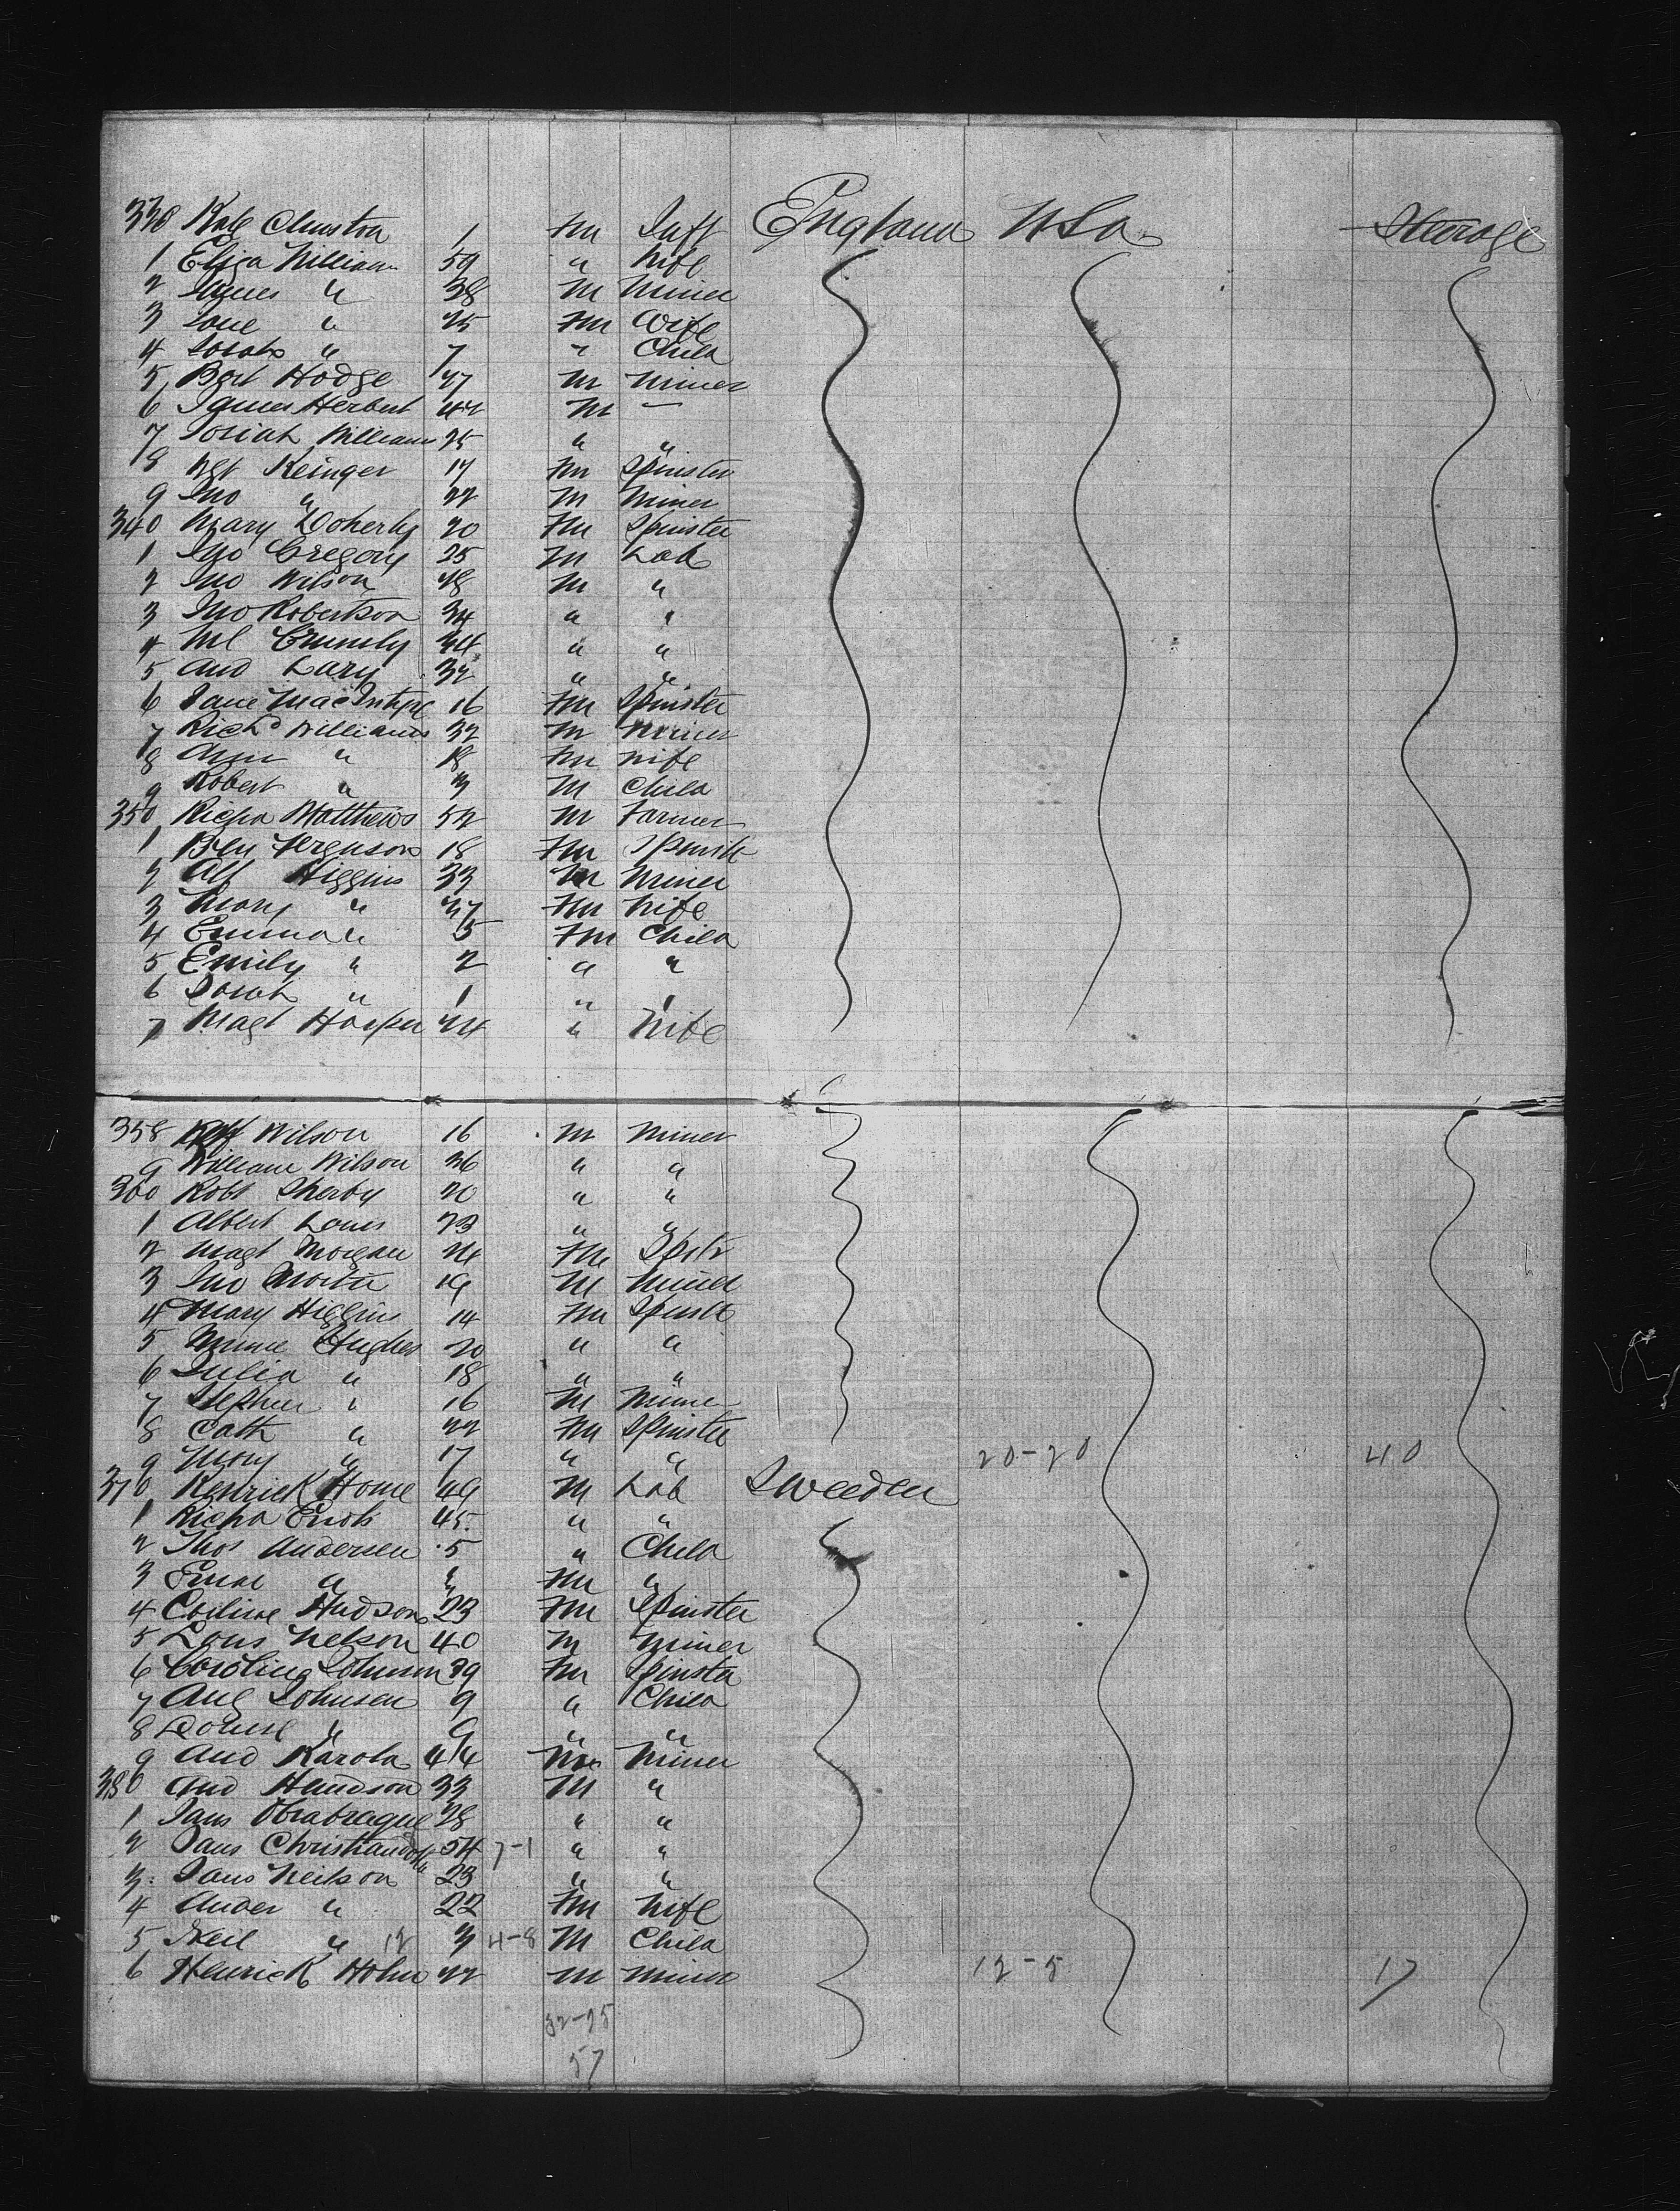 330 Kate Clunston 1 Fm Inft England USa Steerage
1 Eliza William 59 " Wife
2 James " 38 M Miner
3 Jane " 25 Fm Wife
4 Sarah " 7 " Child
5 Bert Hodge 47 M Miner
6 James Herbert 42 M "
7 Josiah William 25 " "
8 Mgt Keinger 17 Fm Spinster
9 Jno " 22 M Miner
340 Mary Doherty 20 Fm Spinster
1 Jno Gregory 25 M Lab
2 Jno Wilson 48 M "
3 Jno Robertson 34 " "
4 Ml 34 " "
5 And Lary 32 " "
6 Jane MacIntyre 16 Fm Spinster
7 Richd Williams 32 M Miner
8 Ann " 18 Fm Wife
9 Robert " 3 M Child
350 Richd Matthews 52 M Farmer
1 Ferguson 18 Fm Spinstr
2 Alf Higgins 33 M Miner
3 Mary " 27 Fm Wife
4 Emma " 5 Fm Child
5 Emily " 2 " "
6 Sarah " 1 " "
7 Magt Harper 24 " Wife
358 Wilson 16 M Miner
9 William Wilson 36 " "
360 Robt Sherby 20 " "
1 Albert Louis 23 " "
2 Magt Morgan 24 Fm Spstr
3 Jno Martin 19 M Miner
4 Mary Higgins 14 Fm Spinstr
5 Minnie Hughes 20 " "
6 Julia " 18 " "
7 Stephen " 16 M Miner
8 Cath " 22 Fm Spinster
9 Mary " 17 " " 20-20 40
370 Kenrick Home 49 M Lab Sweeden
1 Richd 45 " "
2 Thos Andersen 5 " Child
3 " Fm "
4 Hudson 23 Fm Spinster
5 Louis Nelson 40 M Miner
6 Caroline Johnson 39 Fm Spinster
7 Aug Johnsen 9 " Child
8 Louise " 9 " "
9 And Karola 44 M Miner
380 And Hendson 33 M "
1 Jans 28 " "
2 Jans 54 7-1 " "
3 Jans Neilson 23 " "
4 Ander " 22 Fm Wife
5 Neil " 12 3 4-8 M Child
6 Henrick Holm 22 M Miner 12-5 17
32-25
57